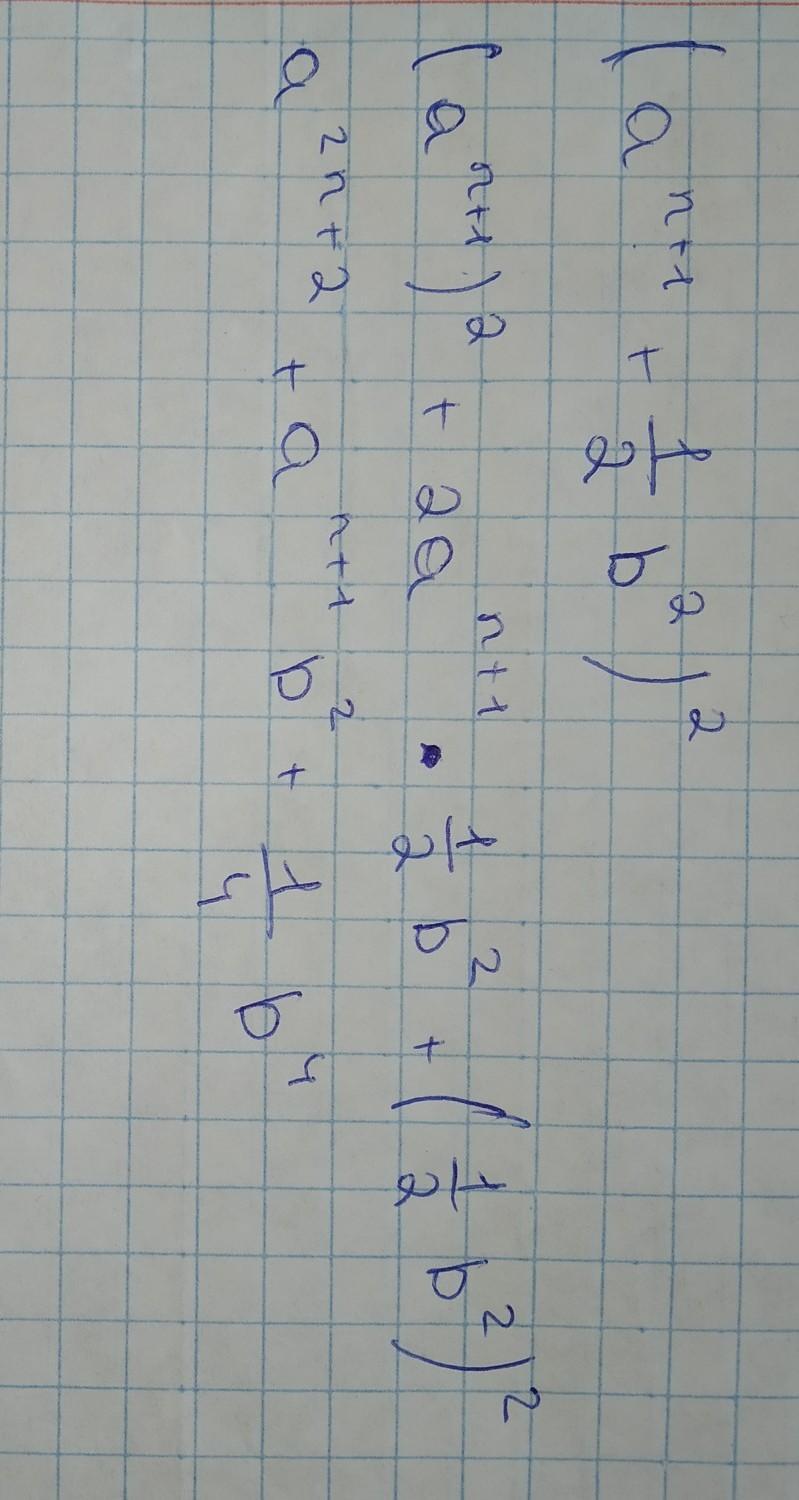 (a^{n+1} + \frac{1}{2} b^2)^2
(a^{n+1})^2 + 2a^{n+1} • \frac{1}{2} b^2 + (\frac{1}{2} b^2)^2
a^{2n+2} + a^{n+1} b^2 + \frac{1}{4} b^4